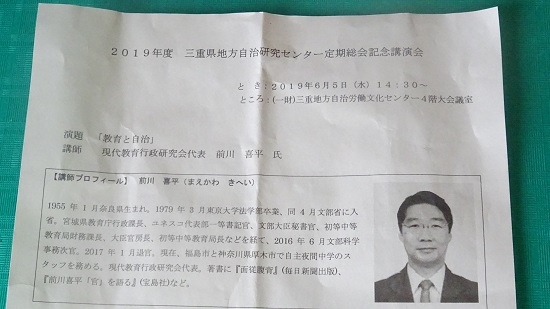 2019年度　三重県地方自治研究センター定期総会記念講演会
と　き：2019年6月5日（水）14：30～
ところ：(一財)三重地方自治労働文化センター4階大会議室
演題　「教育と自治」
講師　現代教育行政研究会代表　前川　喜平　氏
【講師プロフィール】　前川　喜平（まえかわ　きへい）
1955 年 1 月奈良県生まれ。1979 年 3 月東京大学法学部卒業、同 4 月文部省に入
省。宮城県教育庁行政課長、ユネスコ代表部一等書記官、文部大臣秘書官、初等中等
教育局財務課長、大臣官房長、初等中等教育局長などを経て、2016 年 6 月文部科学
事務次官。2017 年 1 月退官。現在、福島市と神奈川県厚木市で自主夜間中学のス
タッフを務める。現代教育行政研究会代表。著書に『面従腹背』(毎日新聞出版)、
『前川喜平「官」を語る』(宝島社)など。